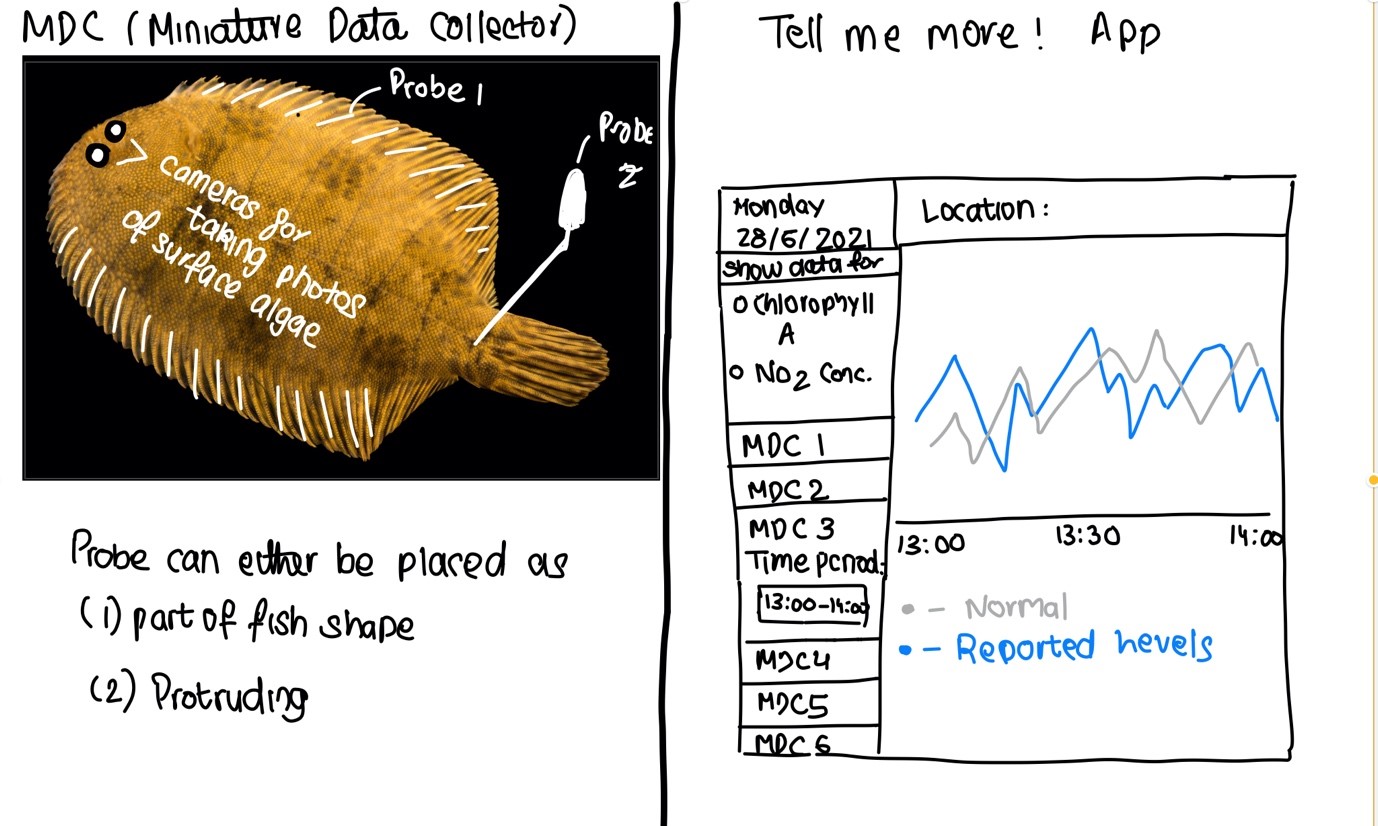 MDC (Miniature Data Collector)
Probe 1
Probe
2
cameras for
taking photos
of surface algae
Probe can either be placed as
(1) part of fish shape
(2) Protruding
Tell me more! App
Monday
28/6/2021
Location:
show data for
Chlorophyll
A
NO2 Conc.
MDC 1
MDC 2
MDC 3
Time period:
13:00-14:00
MDC4
MDC5
MDC 6
13:00 13:30 14:00
- Normal
- Reported hevels